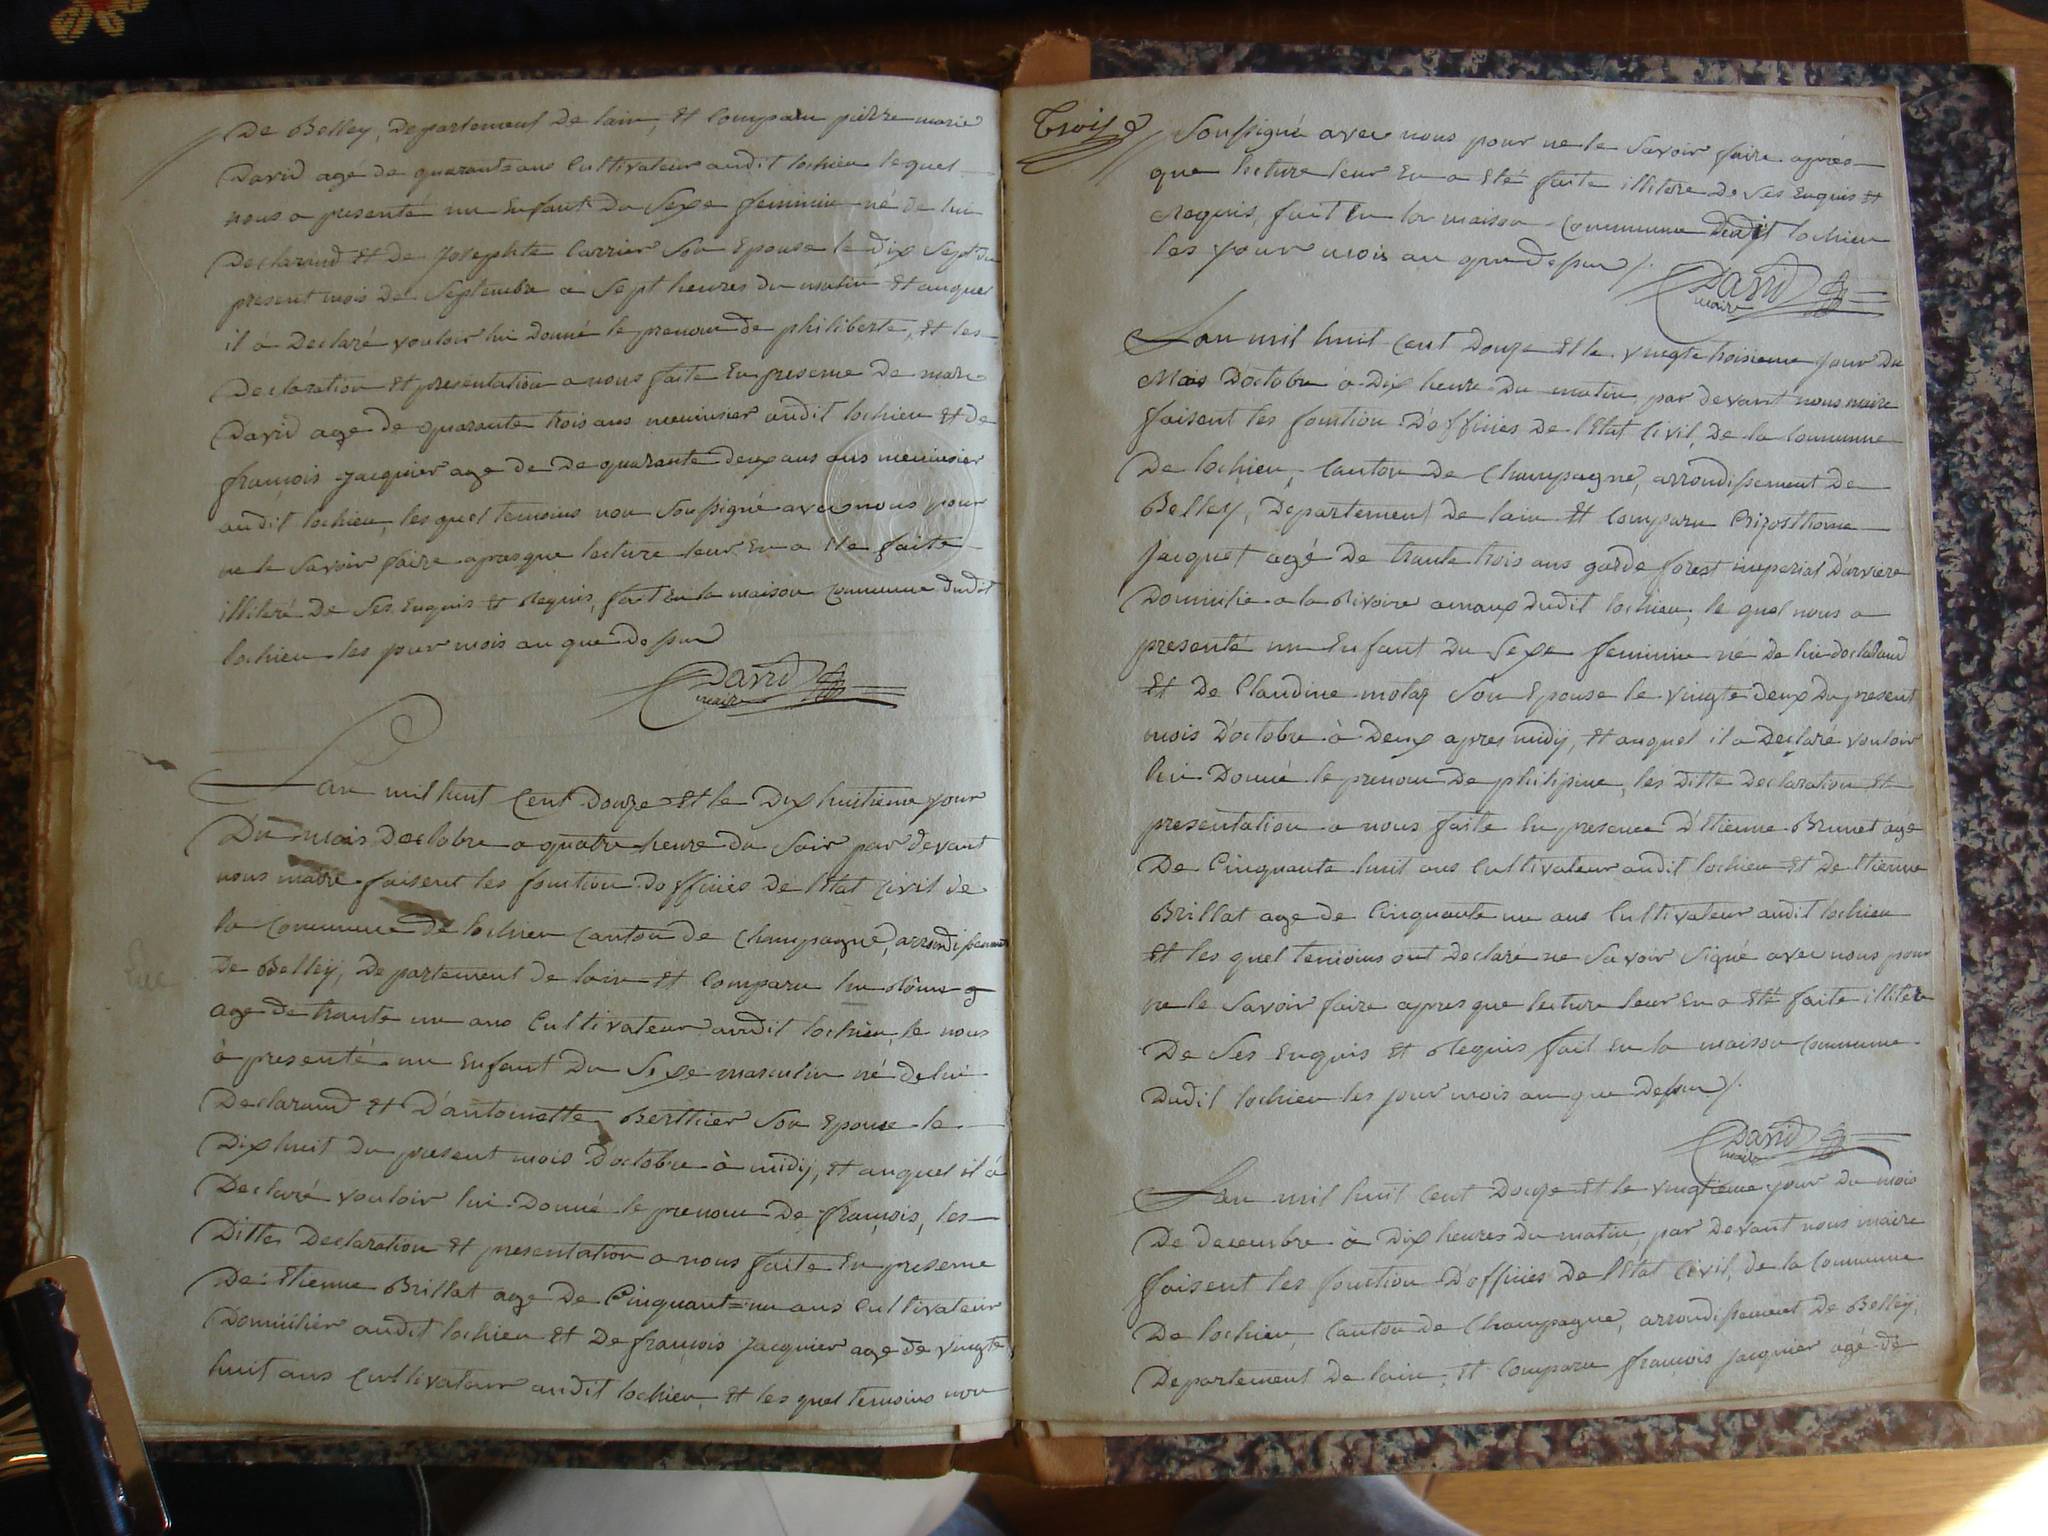 De Belley, Departement De lain, et Comparu pierre marie
David agé de quarante ans Cultivateur audit lochieu lequel
nous a presenté un Enfant Du Sexe feminin né de lui
Declarand et de Josephte Carrier Son Epouse le dix Sept du
present mois de Septembre a Sept heures du matin et auquel
il à Declaré vouloir lui Donné le prenom de philiberte, et les
Declaration et presentation a nous faite En presence De marc
David agé de quarante trois ans menuisier audit lochieu et de
françois jacquier age de De quarante deux ans ans menuisier
audit lochieu, les quel temoins non Soussigné avec nous pour
ne le Savoir faire apres que lecture leur En a Ete faite
illiteré De Ses Enquis et Requis, fait En la maison Commune Dudit
lochieu les jour mois an que Dessus
David
maire
Lan mil huit Cent Douze et le Dix huitieme jour
Du mois Doctobre a quatre heure du Soir par devant
nous maire faisent les fonction dofficies de lEtat Civil de
la Commune de lochieu canton de Champagne, arrondissement
De Belleÿ, Departement de lain et Comparu
age De trante un ans Cultivateur audit lochieu, le nous
à presenté un Enfant Du Sexe masculin né de lui
Declarand et D'antoinette Berthier Son Epouse le
Dix huit du present mois Doctobre à midÿ, et auquel il à
Declaré vouloir lui Donné le prenom De françois, les
Ditte Declaration et presentation a nous faite En presence
De Etienne Brillat age De Cinquant=un ans Cultivateur
Domicilier audit lochieu et De françois Jacquier age de vingte
huit ans Cultivateur audit lochieu, et les quel temoins non
Trois
Soussigné avec nous pour ne le Savoir faire après
que lecture leur En a Eté faite illitere De Ses Enquis et
Requis, fait En la maison Commune Dudit lochieu
les jour mois an que Dessus /.
David
maire
Lan mil huit Cent Douze et le vingte troisieme jour Du
Mois D'octobre à Dix heure Du matin, par devant nous maire
faisent les fonction D'officies De lEtat Civil, De la Commune
De lochieu, Canton De Champagne, arrondissement De
Belleÿ, Departement De lain et Comparu Crizosthome
Jacquet agé De trante trois ans garde forest imperial D'arviere
Domicilie a la Rivoire Dudit lochieu, le quel nous a
presenté un Enfant Du Sexe feminin né De lui declarand
et De Claudine Son Epouse le vingte deux Du present
mois D'octobre à Deux apres midÿ, et auquel il a Declaré vouloir
lui Donné le prenom De philipine, les Ditte Declaration et
presentation a nous faite En presence D'Etienne Brunet age
De Cinquante huit ans Cultivateur audit lochieu et De Etienne
Brillat age de Cinquante un ans Cultivateur audit lochieu
et les quel temoins ont Declaré ne Savoir Signé avec nous pour
ne le Savoir faire apres que lecture leur En a Eté faite illitere
De Ses Enquis et Requis fait En la maison Commune
Dudit lochieu les jour mois an que Dessus /.
David
maire
Lan mil huit Cent Douze et le vingtieme jour Du mois
De decembre à Dix heures Du matin, par Devant nous maire
faisent les fonction D'officies De lEtat Civil, De la Commune
De lochieu, Canton De Champagne, arrondissement De Belleÿ,
Departement De lain, et Comparu françois Jacquier agé de